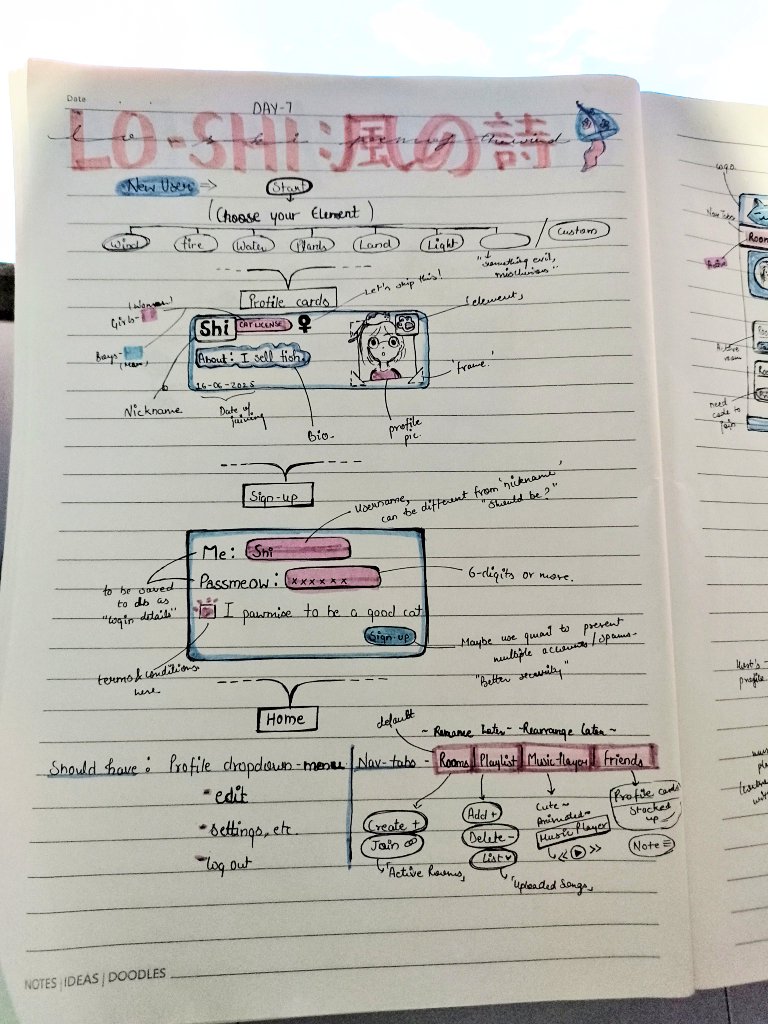 Date
DAY-7
LO-SHI:風の詩
New User ⇒
Start
(Choose your Element)
Wind
fire
Water
Plants
Land
Light
/ Custom
"something evil, mischievous"
Let's skip this!
Profile cards
(Women)
Girls-
Boys-
(Men)
Shi
CAT LICENSE
♀
'element,
About: I sell fish.
16-06-2025
'frame'
Nickname
Date of joining
Bio.
profile pic.
Sign-up
Username,
can be different from 'nickname'
"Should be?"
Me: Shi
Passmeow: x x x x x x
6-digits or more.
to be saved
to db as
"login details"
I pawmise to be a good cat
Sign-up
Maybe use gmail to prevent
multiple accounts/spams-
"Better security"
terms & conditions
here
Home
default
~ Rename Later~ ~Rearrange Later~
Should have: Profile dropdown-menu
Nav-tabs - Rooms Playlist Music-Player Friends
edit
settings, etc.
log out
Create +
Join
'Active Rooms,
Add +
Delete -
List
'Uploaded Songs,
Cute~
Animated~
Music Player
Profile cards
Stacked
up
Note
NOTES | IDEAS | DOODLES
Room
Active
room
need
code to
join
Host's -
profile